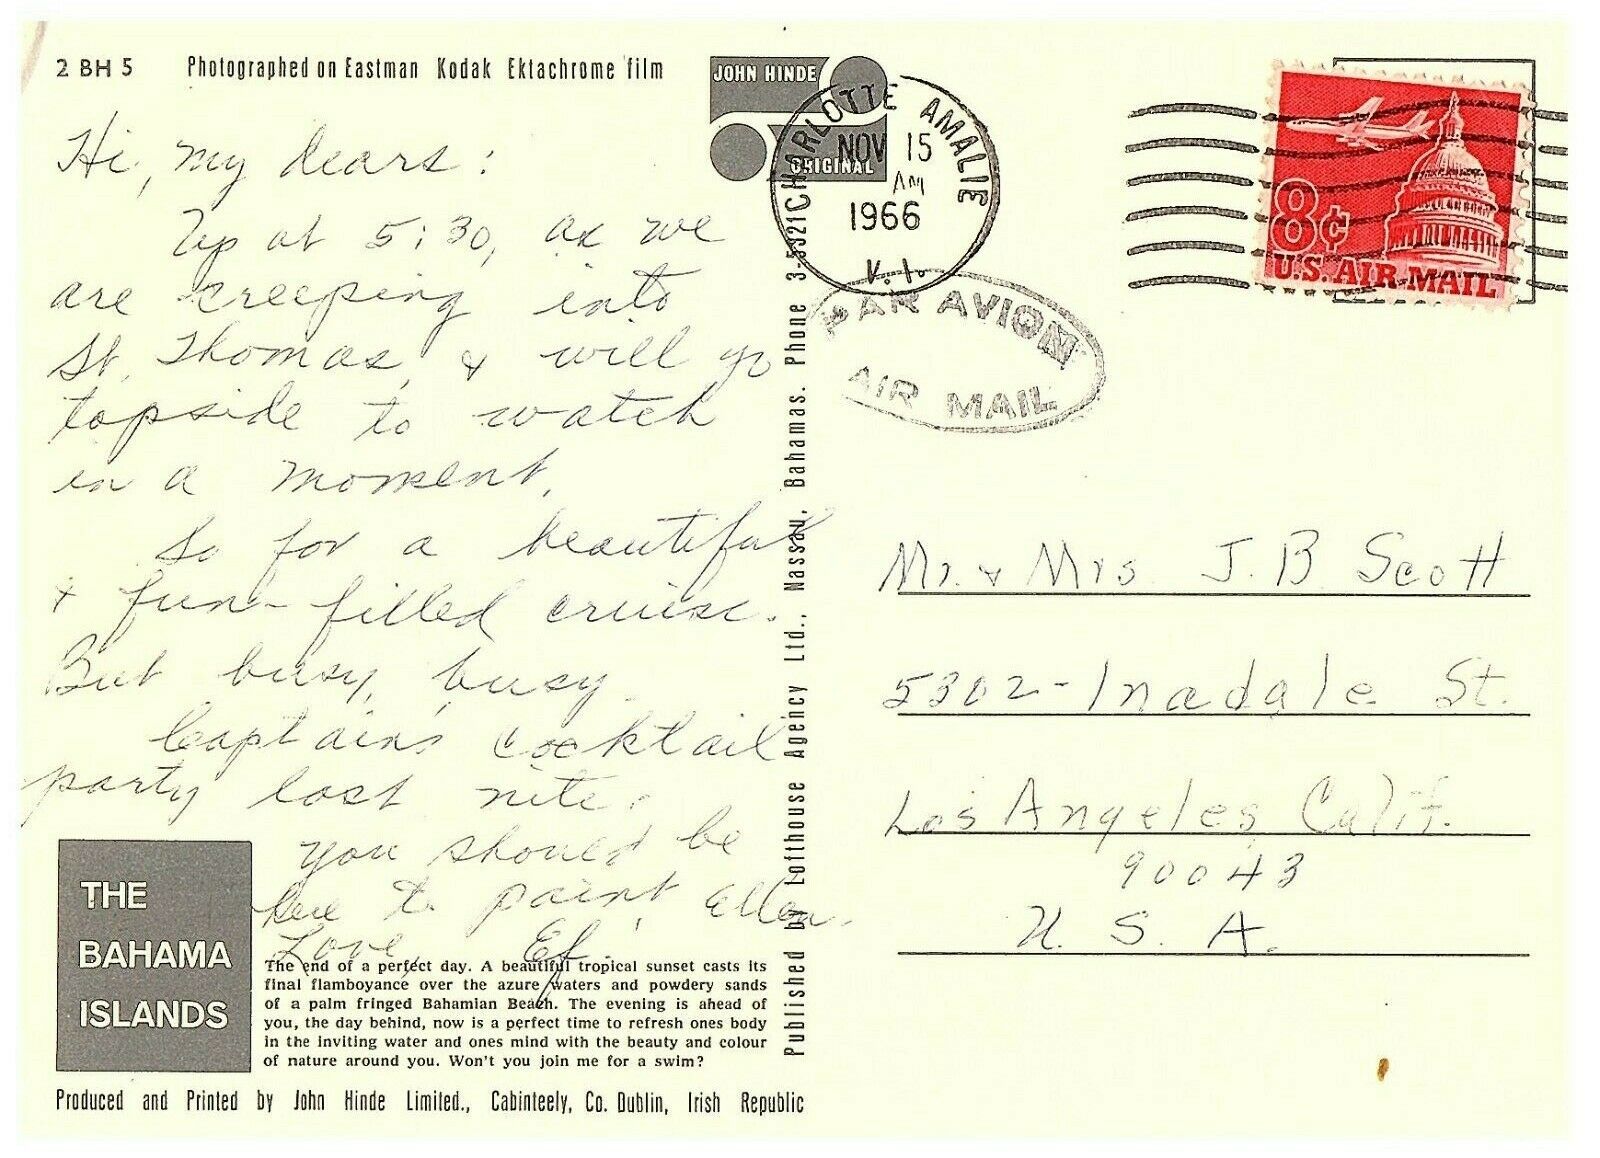 2 BH 5 Photographed on Eastman Kodak Ektachrome film
JOHN HINDE
ORIGINAL
Hi, my dears:
Up at 5:30, as we
are creeping into
St. Thomas, & will go
topside to watch
in a moment.
So for a beautiful
& fun-filled cruise.
But busy, busy.
Captain's cocktail
party last nite.
You should be
here to paint, Ellen.
Love, Ef.
THE
BAHAMA
ISLANDS
The end of a perfect day. A beautiful tropical sunset casts its
final flamboyance over the azure waters and powdery sands
of a palm fringed Bahamian Beach. The evening is ahead of
you, the day behind, now is a perfect time to refresh ones body
in the inviting water and ones mind with the beauty and colour
of nature around you. Won't you join me for a swim?
Produced and Printed by John Hinde Limited., Cabinteely, Co. Dublin, Irish Republic
Published by Lofthouse Agency Ltd., Nassau, Bahamas. Phone 3-5321
CHARLOTTE AMALIE
NOV 15
AM
1966
V.I.
PAR AVION
AIR MAIL
8¢
U.S. AIR MAIL
Mr. & Mrs J. B Scott
5302-Inadale St.
Los Angeles Calif.
90043
U. S. A.